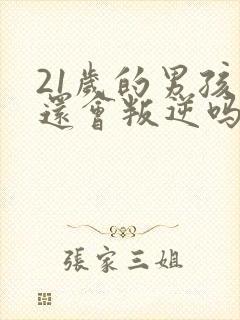 21歲的男孩
還會叛逆吗
張家三姐